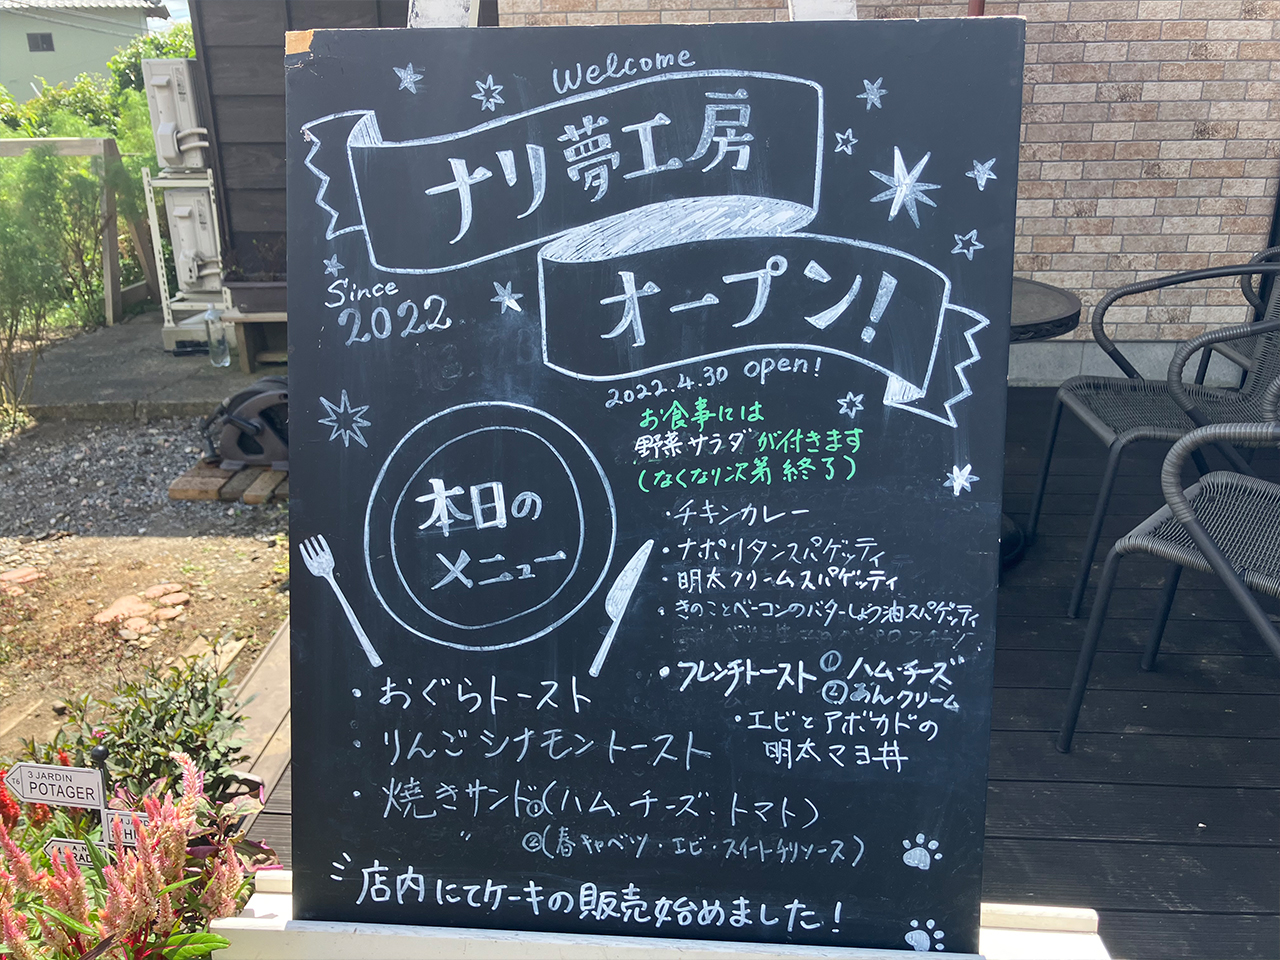 Welcome
ナリ夢工房
オープン!
Since
2022
2022.4.30 open!
お食事には
野菜サラダが付きます
(なくなり次第終了)
本日の
メニュー
・チキンカレー
・ナポリタンスパゲッティ
・明太クリームスパゲッティ
・きのことベーコンのバターしょう油スパゲッティ
・フレンチトースト ① ハム・チーズ
② あんクリーム
・エビとアボカドの
明太マヨ丼
・おぐらトースト
・りんごシナモントースト
・焼きサンド①(ハム、チーズ、トマト)
〃 ②(春キャベツ・エビ・スイートチリソース)
店内にてケーキの販売始めました!
T6
3 JARDIN
POTAGER